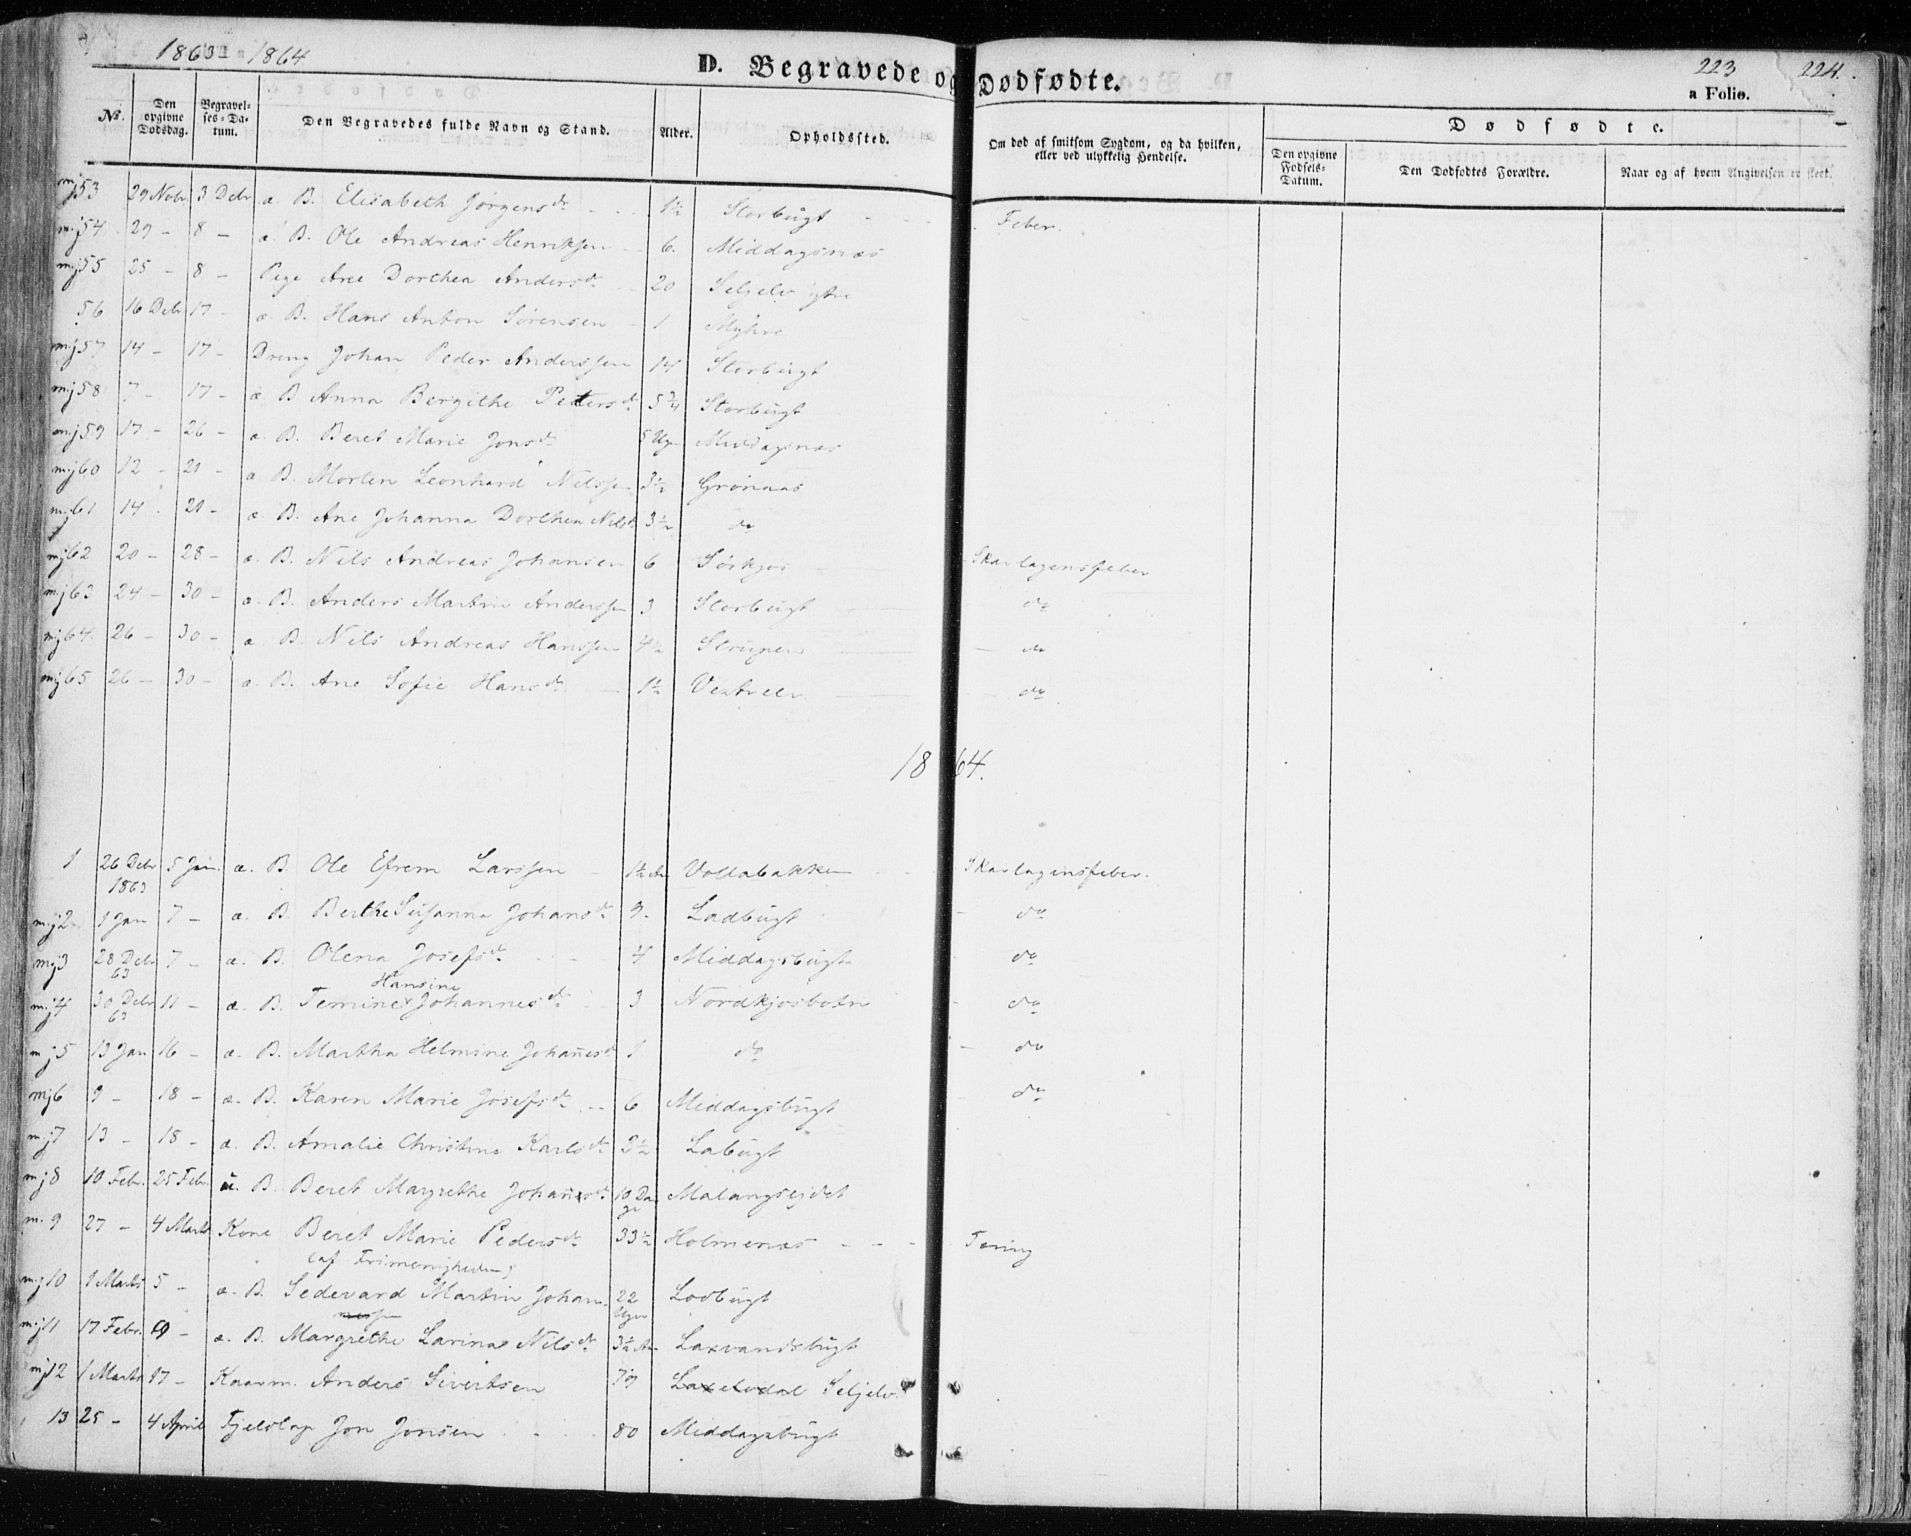 1863 - 1864
D. Begravede og Dødfødte.
223 224.
a Folio.
No. Den opgivne Dødsdag. Begravelses-Datum. Den Begravedes fulde Navn og Stand. Alder. Opholdssted. Om død af smitsom Sygdom, og da hvilken, eller ved ulykkelig Hendelse. Dødfødte. Den opgivne Fødsels-Datum. Den Dødfødtes Forældre. Naar og af hvem Angivelsen er skeet.
mj 53 29 Novbr 3 Debr æ. B. Elisabeth Jørgensdr 1½ Storbugt - Feber.
mj 54 29 - 8 - æ. B. Ole Andreas Henriksen 6. Middagsnæs
mj 55 25 - 8 - Pige Ane Dorthea Andersdr 20 Seljelv ytre
56 16 Debr 17 - æ B. Hans Anton Sørensen - 1 Myhre
mj 57 14 - 17 - Dreng Johan Peder Anderssen 14 Storbugt
mj 58 7 - 17 - æ. B Anna Bergithe Pettersdr 5 ¾ Storbugt
mj 59 17 - 26 - æ. B. Beret Marie Jonsdr 5 Uger Middagsnæs
mj 60 12 - 21 - æ B. Morten Leonhard Nilssen 3½ Grønaas
mj 61 14 - 21 - æ. B. Ane Johanna Dorthea Nilsdr 3½ do
mj 62 20 - 28 - æ. B. Nils Andreas Johansen 6 Sørkjos Skarlagensfeber
mj 63 24 - 30 - æ. B. Anders Martin Anderssen 3 Storbugt do
mj 64. 26 - 30 - æ B. Nils Andreas Hanssen 4½ Strupen - do
mj 65 26 - 30 - æ. B. Ane Sofie Hansdr 1½ - do
1864.
1 26 Debr 1863 5 Jan. æ. B. Ole Efrem Larssen - 1½ Aar Vollabakken Skarlagensfeber.
mj 2 1 Jan 7 - æ. B. Berthe Susanna Johansdr 9. Ladbugt - do
mj 3 28 Debr 63 7 - æ. B. Olena Josefsdr 4 Middagsbugt do
Hansine
mj 4 30 Debr 63 11 - æ. B. Temine Johannesdr 3 Nordkjosbotn - do
mj 5 13 Jan 16 - æ. B. Martha Helmine Johañesdr 1 do - do
mj 6 9 - 18 - æ. B. Karen Marie Josefsdr 6 Middagsbugt do
mj 7 13 - 18 - æ. B. Amalie Christine Karlsdr 2½ Labugt
mj 8 10 Febr. 25 Febr. u. B. Beret Margrethe Johansdr 10 Dage Malangsejdet
m. 9 27 - 4 Marts Kone Beret Marie Pedersdr 33½ Holmenæs - - - Tæring
(af Frimenigheden)
mj 10 1 Marts 5 - æ. B. Sedevard Martin Johan- 22 Uger Lodbugt
nessen
mj 11 17 Febr. 9 - æ. B. Margrethe Larina Nilsdr 3½ Aar Laxvandsbugt
mj 12 1 Marts 17 - Kaarm. Anders Sivertsen 79 Laxelvdal Seljelv.
13 25 - 4 April Fjeldlap Jon Jonsen 80 Middagsbugt